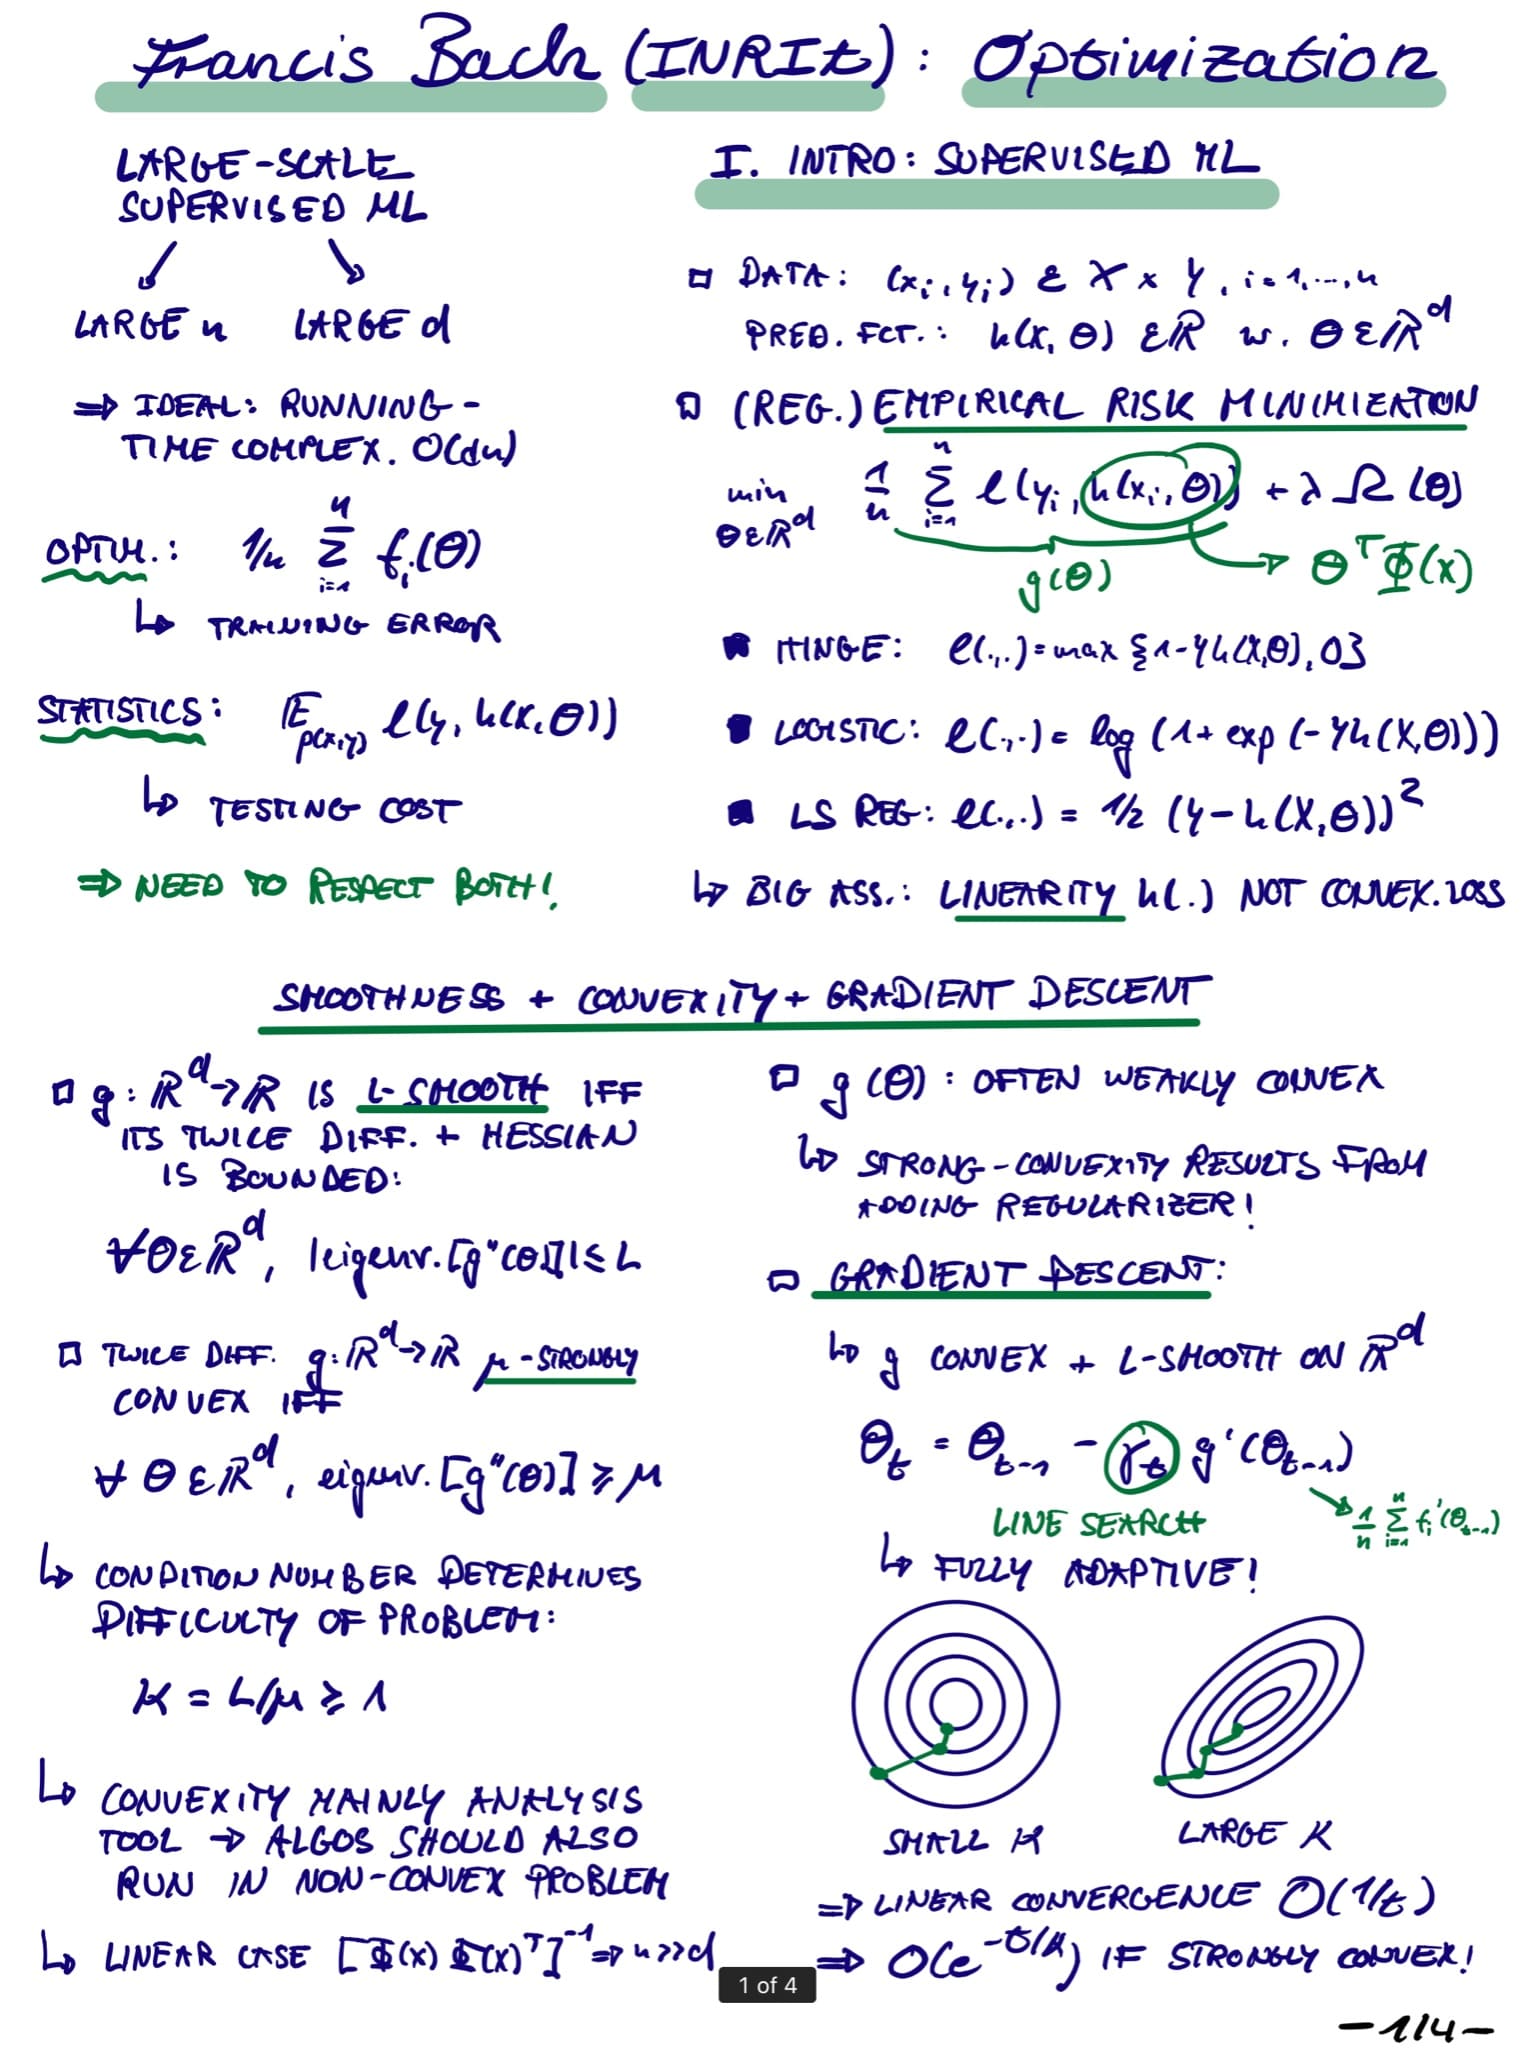 Francis Bach (INRIA): Optimization
LARGE-SCALE
SUPERVISED ML
↙ ↘
LARGE n LARGE d
⇒ IDEAL: RUNNING-
TIME COMPLEX. O(dn)
OPTIM.: 1/n Σ_{i=1}^{n} f_i(θ)
↳ TRAINING ERROR
STATISTICS: E_{p(x,y)} ℓ(y, h(x,θ))
↳ TESTING COST
⇒ NEED TO RESPECT BOTH!
I. INTRO: SUPERVISED ML
□ DATA: (x_i, y_i) ∈ X × Y, i=1,...,n
PRED. FCT.: h(x, θ) ∈ ℝ w. θ ∈ ℝ^d
□ (REG.) EMPIRICAL RISK MINIMIZATION
min_{θ∈ℝ^d} 1/n Σ_{i=1}^{n} ℓ(y_i, h(x_i, θ)) + λ Ω(θ)
g(θ) → θ^T Φ(x)
■ HINGE: ℓ(.,.) = max {1-Yh(X,θ), 0}
■ LOGISTIC: ℓ(.,.) = log (1 + exp (-Yh(X,θ)))
■ LS REG: ℓ(.,.) = 1/2 (Y - h(X,θ))^2
↳ BIG ASS.: LINEARITY h(.) NOT CONVEX. LOSS
SMOOTHNESS + CONVEXITY + GRADIENT DESCENT
□ g: ℝ^d → ℝ IS L-SMOOTH IFF
ITS TWICE DIFF. + HESSIAN
IS BOUNDED:
∀θ∈ℝ^d, |eigenv.[g''(θ)]| ≤ L
□ TWICE DIFF. g: ℝ^d → ℝ μ-STRONGLY
CONVEX IFF
∀ θ ∈ ℝ^d, eigenv. [g''(θ)] ≥ μ
↳ CONDITION NUMBER DETERMINES
DIFFICULTY OF PROBLEM:
K = L/μ ≥ 1
↳ CONVEXITY MAINLY ANALYSIS
TOOL → ALGOS SHOULD ALSO
RUN IN NON-CONVEX PROBLEM
↳ LINEAR CASE [Φ(x) Φ(x)^T]^{-1} ⇒ n>>d
□ g(θ): OFTEN WEAKLY CONVEX
↳ STRONG-CONVEXITY RESULTS FROM
ADDING REGULARIZER!
□ GRADIENT DESCENT:
↳ g CONVEX + L-SMOOTH ON ℝ^d
θ_t = θ_{t-1} - γ_t g'(θ_{t-1})
LINE SEARCH → 1/n Σ_{i=1}^{n} f_i'(θ_{t-1})
↳ FULLY ADAPTIVE!
SMALL K LARGE K
⇒ LINEAR CONVERGENCE O(1/t)
⇒ O(e^{-t/K}) IF STRONGLY CONVEX!
1 of 4
-1/4-